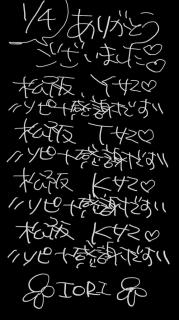 1/4) ありがとう
ございました♡
松阪 Y様♡
〃リピート感謝です!!
松阪 T様♡
〃リピート感謝です!!
松阪 K様♡
〃リピート感謝です!!
松阪 K様♡
〃リピート感謝です!!
IORI